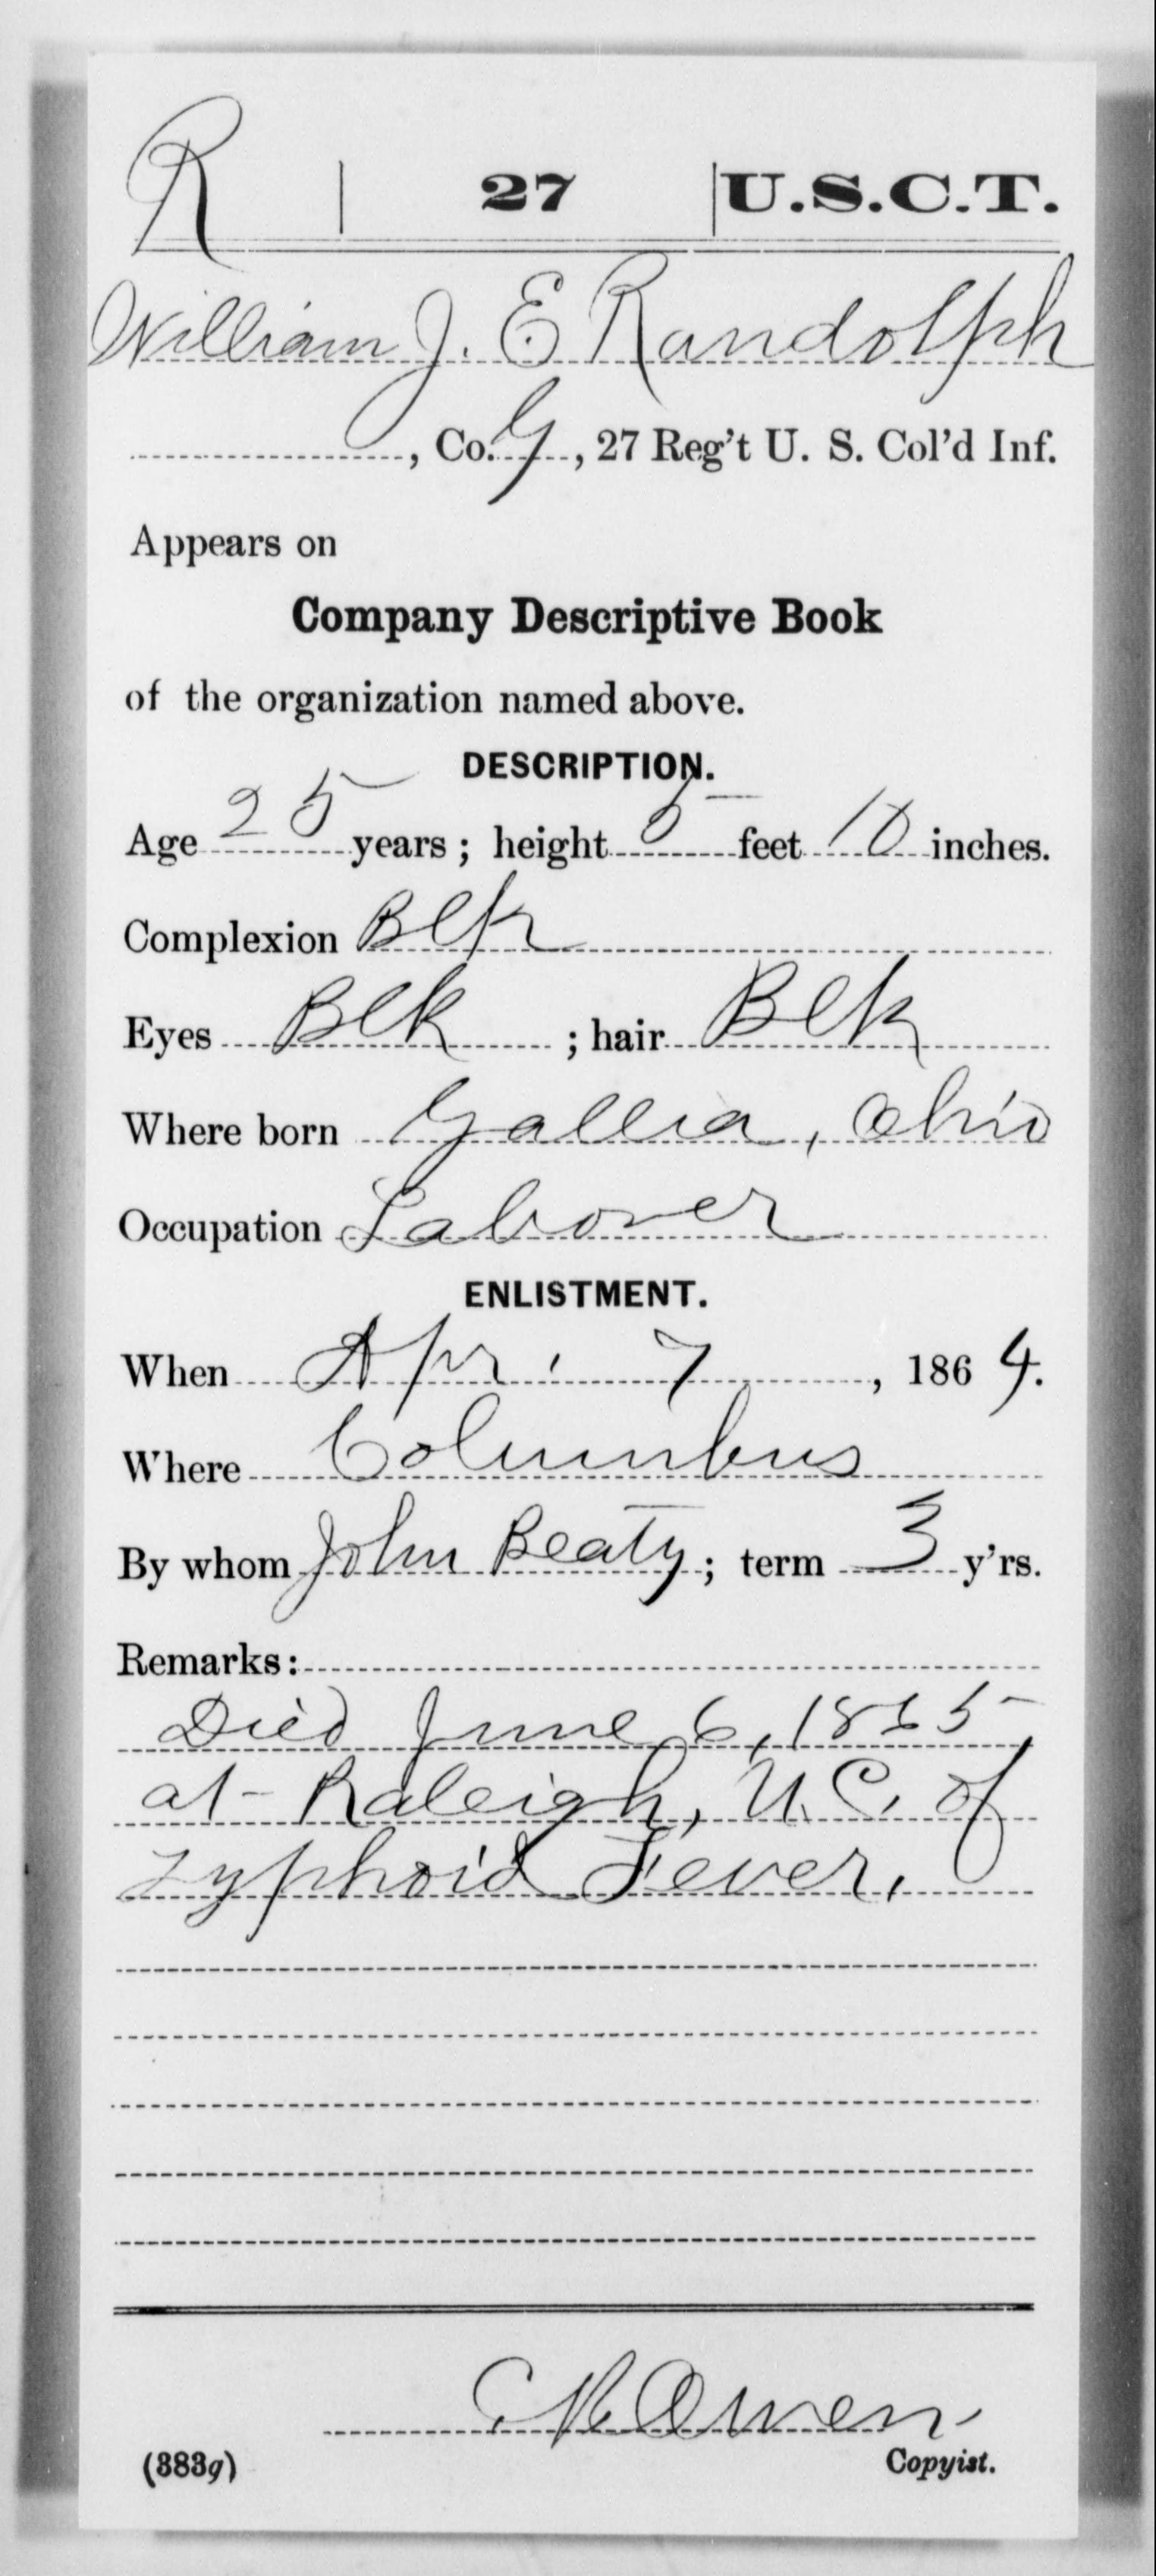 R | 27 | U.S.C.T.
William J. E Randolph
, Co. G, 27 Reg't U. S. Col'd Inf.
Appears on
Company Descriptive Book
of the organization named above.
DESCRIPTION.
Age 25 years; height 5 feet 10 inches.
Complexion Blk
Eyes Blk; hair Blk
Where born Gallia, Ohio
Occupation Laborer
ENLISTMENT.
When Apr. 7, 1864.
Where Columbus
By whom John Beaty; term 3 y'rs.
Remarks:
Died June 6, 1865
at Raleigh, N.C. of
Typhoid Fever.
C R Owen
(383g) Copyist.